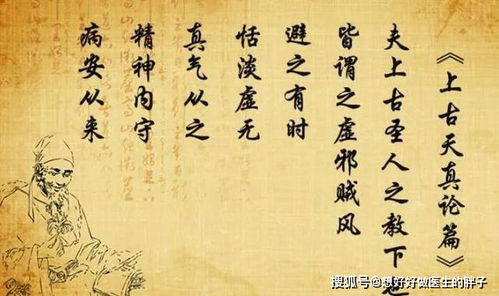 《上古天真论篇》
夫上古圣人之教下也
皆谓之虚邪贼风
避之有时
恬淡虚无
真气从之
精神内守
病安从来
搜狐号@想好好做医生的胖子